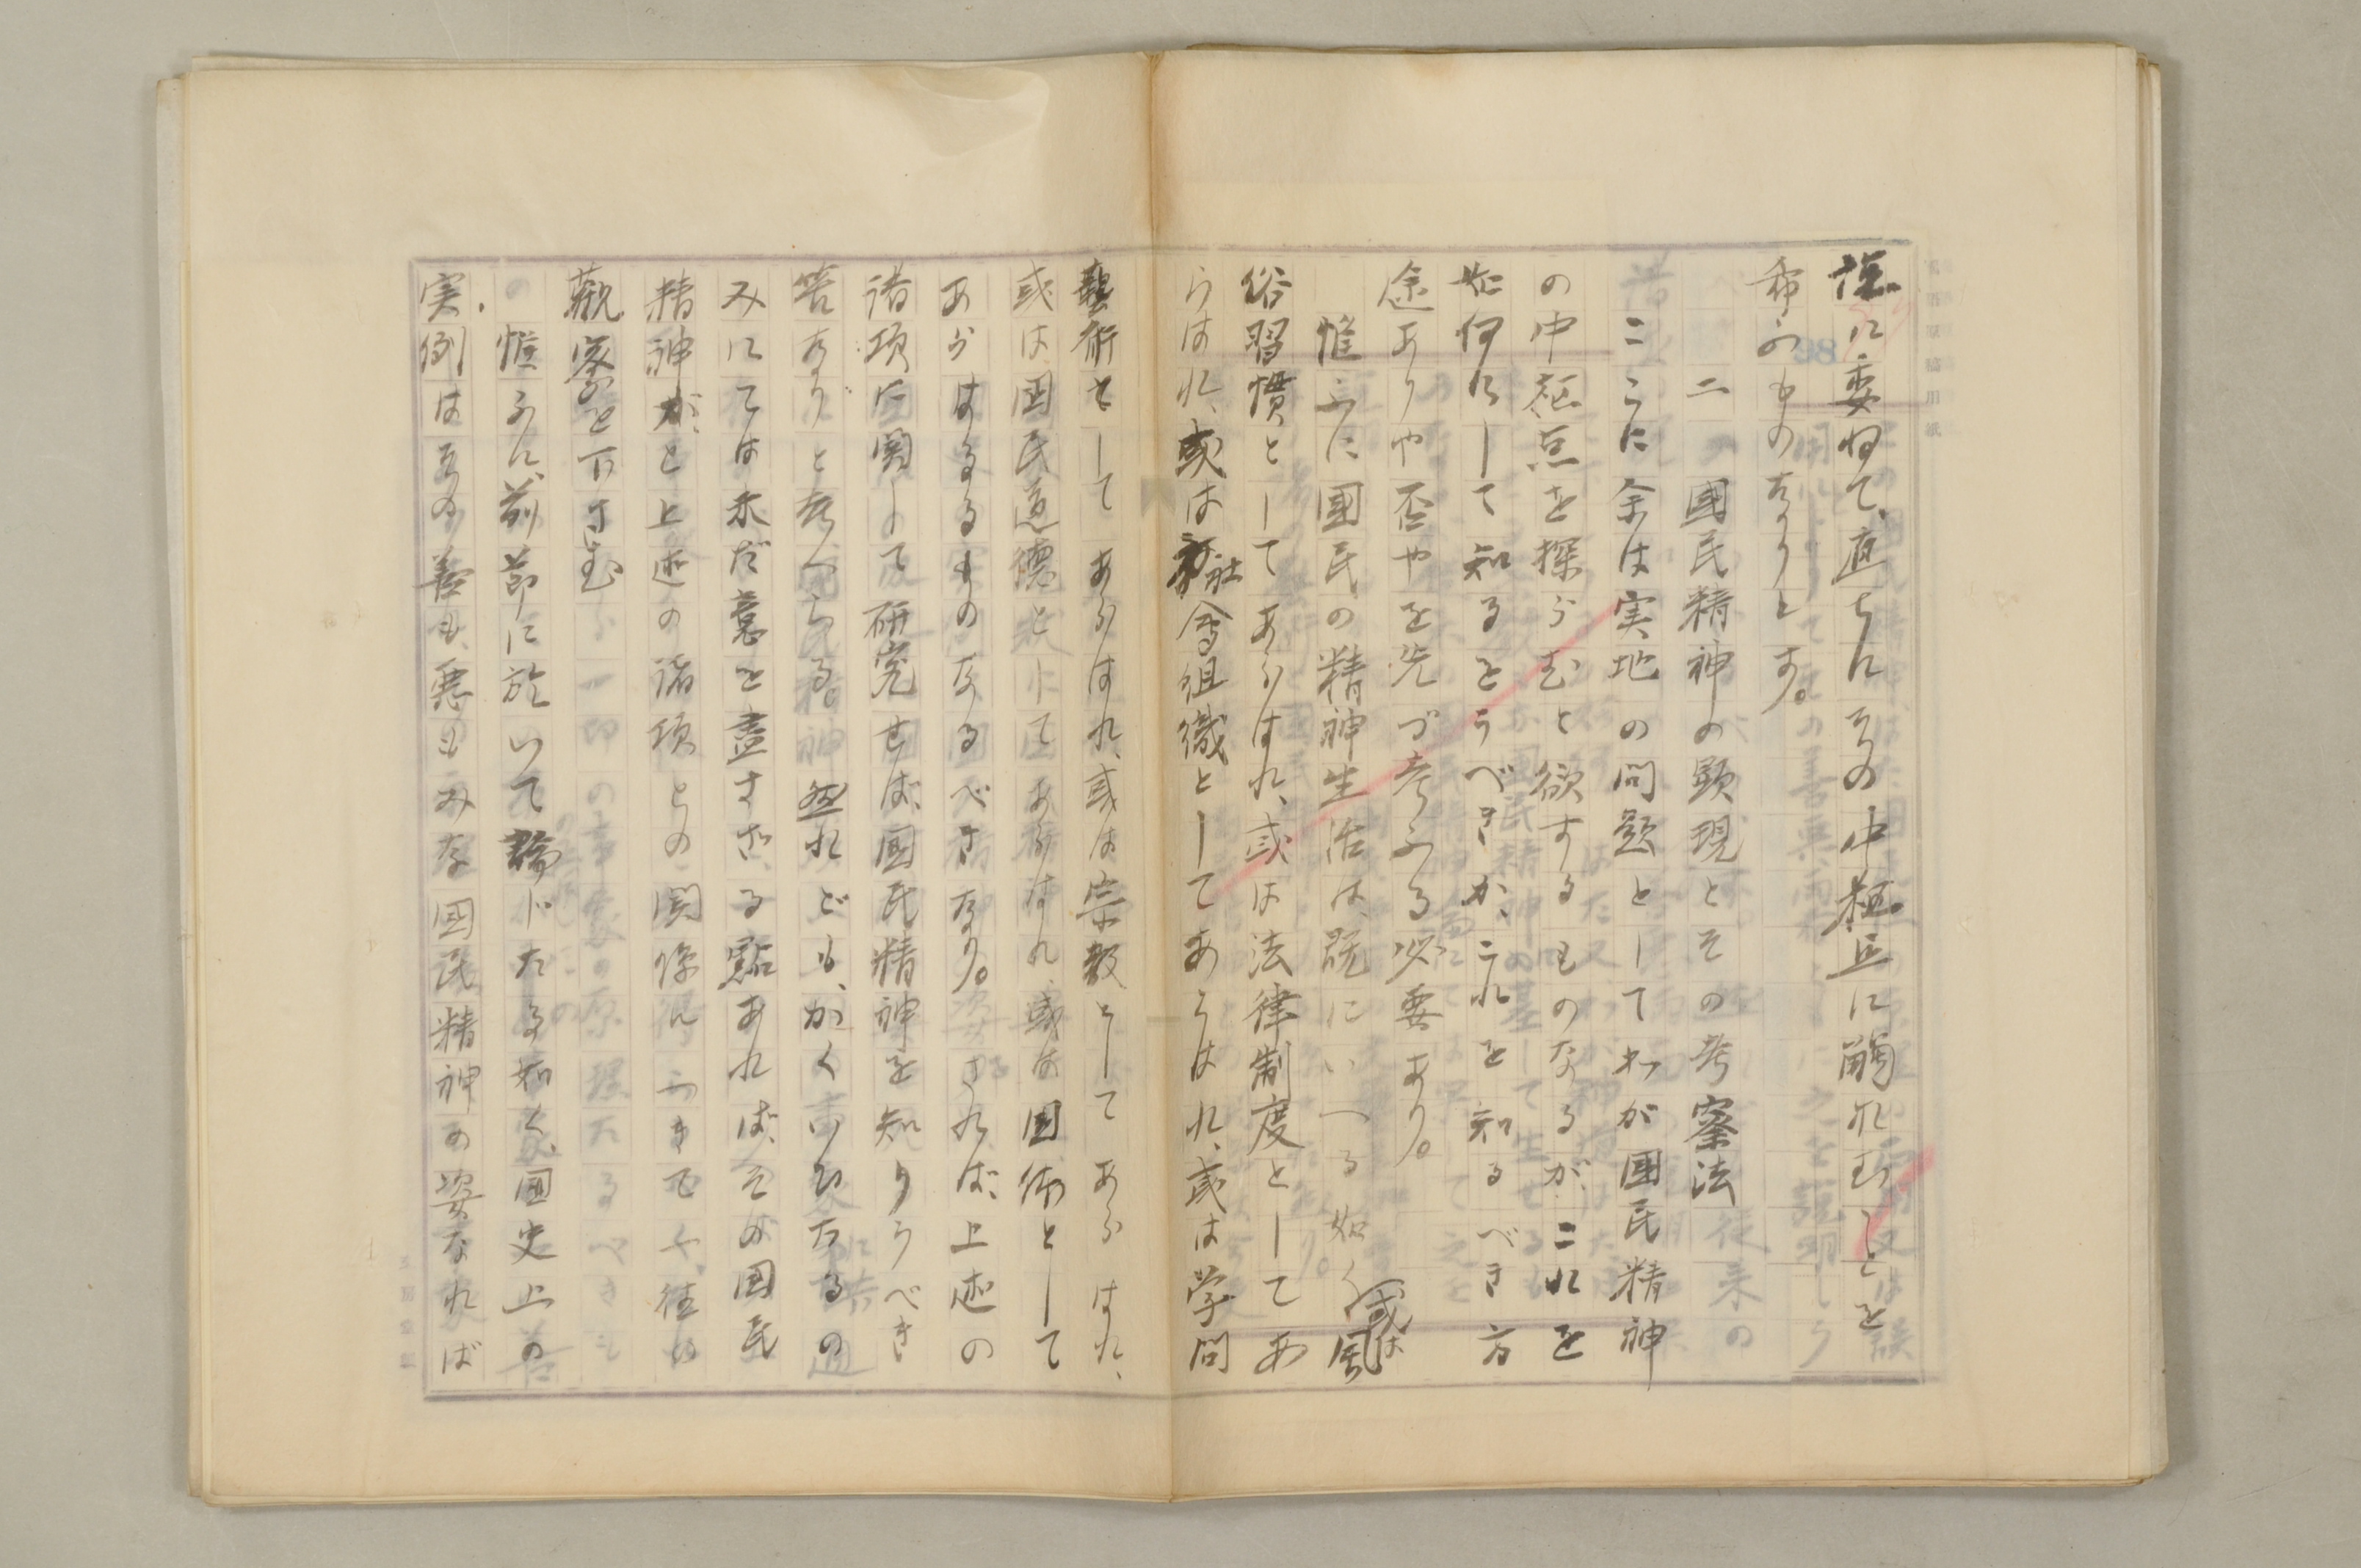 に委ねて、直ちにその中枢点に觸れむことを
希ふものなりとす。
二 國民精神の顕現とその考察法
ここに余は実地の問題としてわが國民精神
の中枢点を探らむと欲するものなるが、これを
如何にして知るをうべきか、これを知るべき方
途ありや否やを先づ考ふる必要あり。
惟ふに國民の精神生活は、既にいへる如く、或は風
俗習慣としてあらはれ、或は法律制度としてあ
らはれ、或は社會組織としてあらはれ、或は学問
藝術としてあらはれ、或は宗教としてあらはれ、
或は國民道德としてあらはれ、或は國体として
あらはるるものなるべきなり。されば、上述の
諸項に関して研究せば、國民精神を知りうべき
筈なりと考へらる。然れども、かくいひたるの
みにては未だ意を盡さざる點あれば、その国民
精神がと上述の諸項との関係につきてや、
觀察を下さむ
惟ふに、前節に於いて論じたる如く、国史上の
実例はその善も、悪もみな国民精神の姿なれば